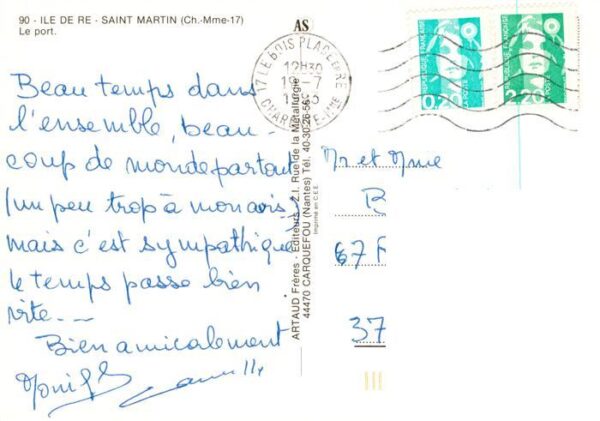 90 - ILE DE RE - SAINT MARTIN (Ch.-Mme-17)
Le port.
Beau temps dans
l'ensemble, beau-
coup de monde partout
(un peu trop à mon avis)
mais c'est sympathique
le temps passe bien
vite...
Bien amicalement
AS
17 LE BOIS PLAGE EN RE
12H30
19-7
CHARENTE-MME
ARTAUD Frères - Editeurs - Z.I. Rue de la Métallurgie
44470 CARQUEFOU (Nantes) Tél. 40-30-26-56
Imprimé en C.E.E.
REPUBLIQUE FRANÇAISE
0,20
LA POSTE
REPUBLIQUE FRANÇAISE
2,20
Mr et Mme
B
67 F
37